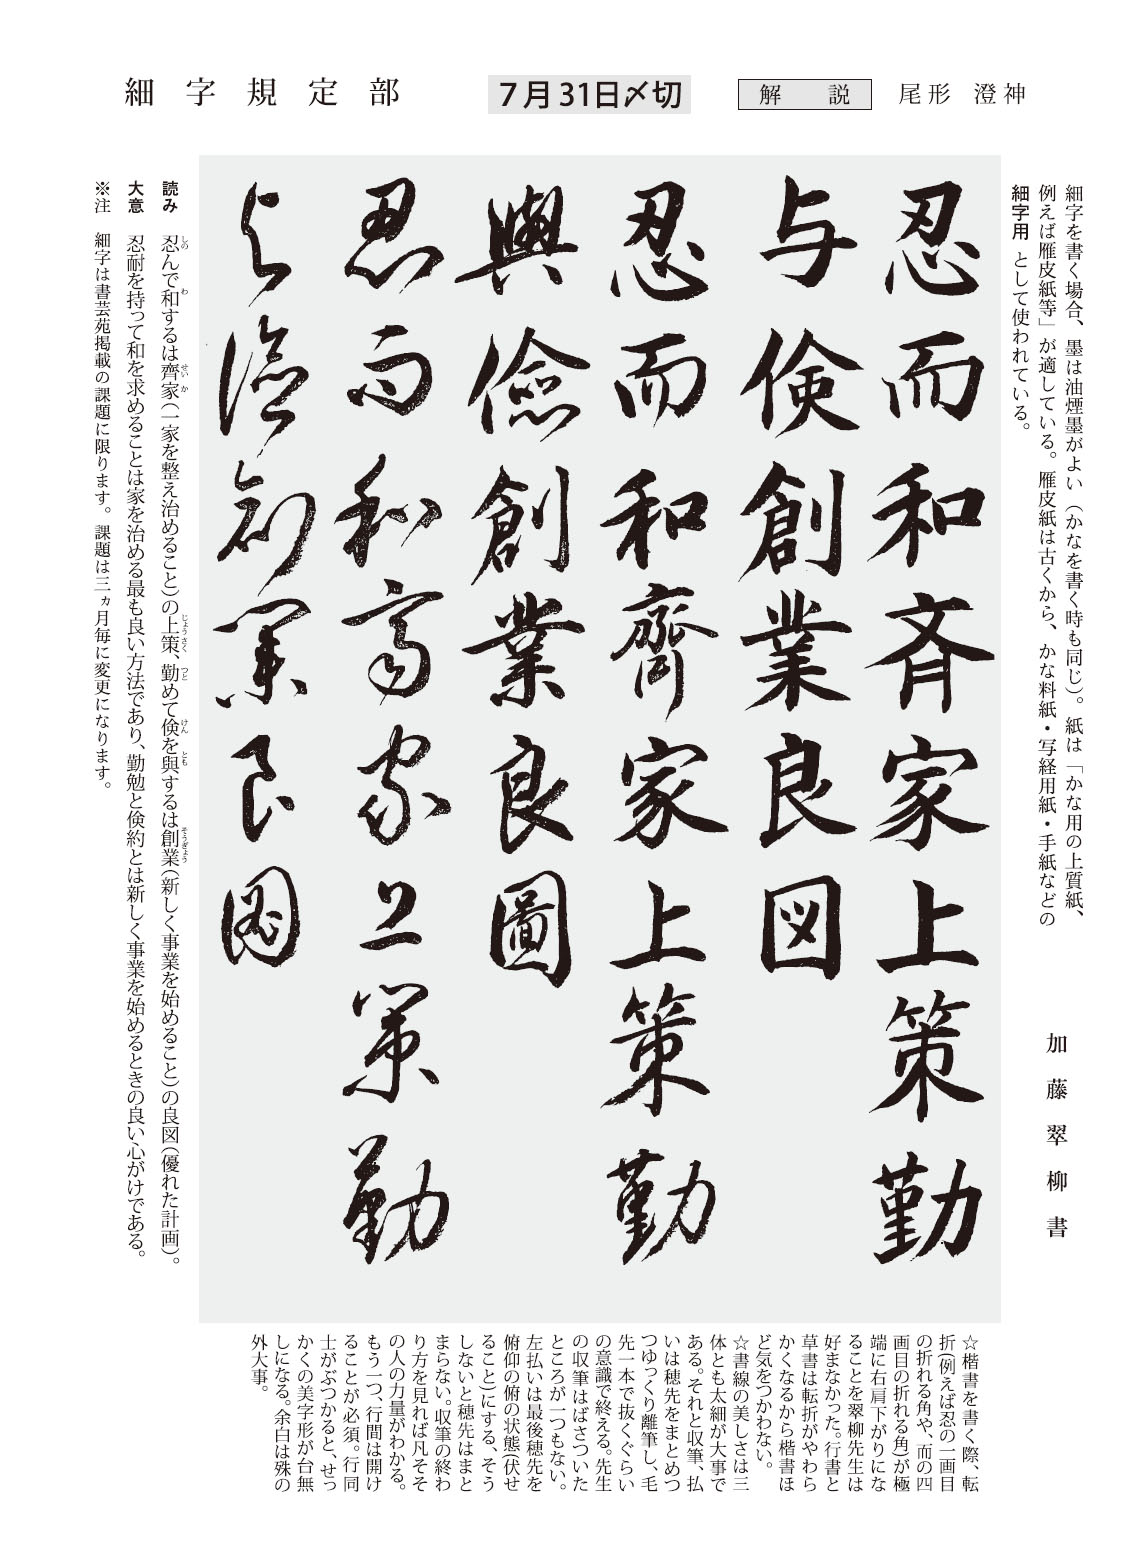 細字規定部
7月31日〆切
解説
尾形 澄神
細字を書く場合、墨は油煙墨がよい（かなを書く時も同じ）。紙は「かな用の上質紙、
例えば雁皮紙等」が適している。雁皮紙は古くから、かな料紙・写経用紙・手紙などの
細字用として使われている。
加藤翠柳書
忍而和斉家上策勤
与倹創業良図
忍而和齊家上策勤
與儉創業良圖
忍而和齊家上策勤
与儉創業良圖
読み 忍んで和するは齊家（一家を整え治めること）の上策、勤めて倹を與するは創業（新しく事業を始めること）の良図（優れた計画）。
しの わ せい か じょうさく つと けん とも そうぎょう
大意 忍耐を持って和を求めることは家を治める最も良い方法であり、勤勉と倹約とは新しく事業を始めるときの良い心がけである。
※注 細字は書芸苑掲載の課題に限ります。課題は三ヵ月毎に変更になります。
☆楷書を書く際、転
折（例えば忍の一画目
の折れる角や、而の四
画目の折れる角）が極
端に右肩下がりにな
ることを翠柳先生は
好まなかった。行書と
草書は転折がやわら
かくなるから楷書ほ
ど気をつかわない。
☆書線の美しさは三
体とも太細が大事で
ある。それと収筆、払
いは穂先をまとめつ
つゆっくり離筆し、毛
先一本で抜くぐらい
の意識で終える。先生
の収筆はばさついた
ところが一つもない。
左払いは最後穂先を
俯仰の俯の状態（伏せ
ること）にする、そう
しないと穂先はまと
まらない。収筆の終わ
り方を見れば凡そそ
の人の力量がわかる。
もう一つ、行間は開け
ることが必須。行同
士がぶつかると、せっ
かくの美字形が台無
しになる。余白は殊の
外大事。